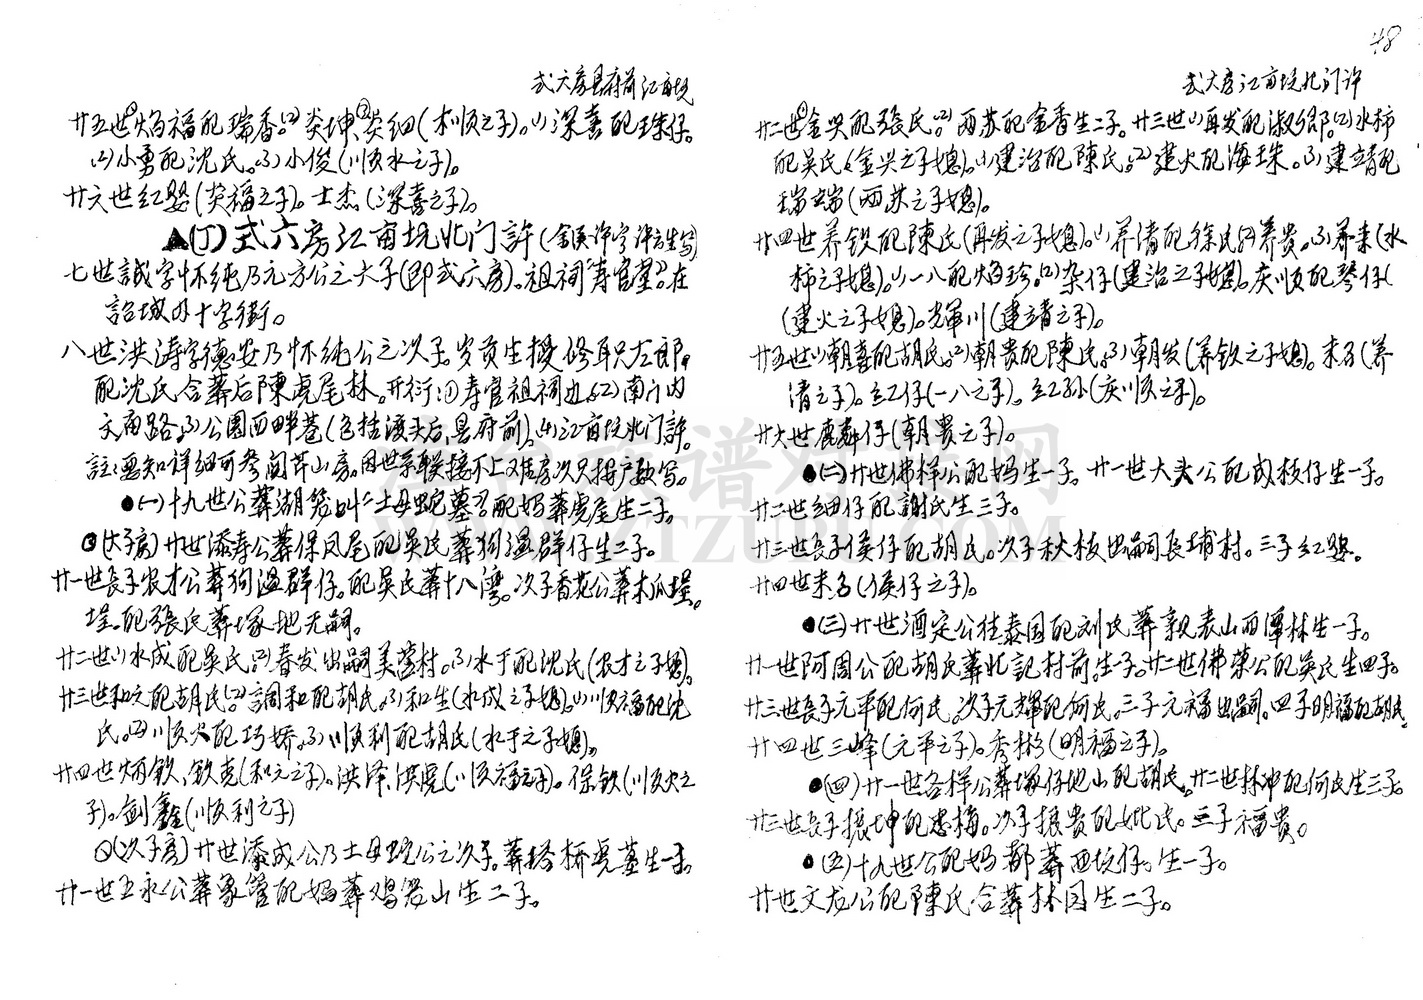 48
式六房县府前江亩坑
廿五世①焰福配瑞香。(2)炎坤、③炎细(木顺之子)。(1)深喜配珠仔。
(2)小勇配沈氏。(3)小俊(顺水之子)。
廿六世红婴(炎福之子)。士杰(深喜之子)。
▲(丁)式六房江亩坑北门許
七世誠字怀纯乃元方公之大子(即式六房)。祖祠“寿官堂”在
詔城内十字街。
八世洪涛字德安乃怀纯公之次子。岁贡生授修职左郎,
配沈氏合葬后陳虎尾林。开衍(1)寿官祖祠边。(2)南门内
文亩路。(3)公园西畔巷(包括渡头后,县府前)。(4)江亩坑北门許。
註:要知详细可参阅芹山房。因世系联接不上又难房次只按户数写。
●(一)十九世公葬湖笼叫“土母蛇墓”配妈葬虎尾生二子。
(大子房)廿世添寿公葬保凤尾配吴氏葬狗温群仔生二子。
廿一世长子农才公葬狗温群仔。配吴氏葬十八湾。次子香花公葬木瓜埕。
埕。配張氏葬塚地无嗣。
廿二世(1)水成配吴氏。(2)春发出嗣美营村。(3)水于配沈氏(农才之子媳)。
廿三世和元配胡氏。(2)調和配胡氏。(3)和生(水成之子媳)。(1)顺福配沈
氏。(2)顺火配巧娇。(3)顺利配胡氏(水于之子媳)。
廿四世炳欽、欽克(和元之子)。洪泽、洪虎(顺福之子)。保欽(顺火之
子)。剑鑫(顺利之子)
(次子房)廿世添成公乃土母蛇公之次子。葬塔桥虎墓生一子。
廿一世五永公葬象管配妈葬鸡笼山生二子。
式六房江亩坑北门許
廿二世①金兴配張氏。(2)两苏配金香生二子。廿三世(1)再发配淑卿。(2)水柿
配吴氏(金兴之子媳)。(1)建治配陳氏。(2)建火配海珠。(3)建靖配
瑞端(两苏之子媳)。
廿四世养欽配陳氏(再发之子媳)。(1)养清配徐氏(2)养贵。(3)养来(水
柿之子媳)。(1)一八配焰珍。(2)杂仔(建治之子媳)。庆顺配琴仔(
(建火之子媳)。光軍川(建靖之子)。
廿五世(1)朝喜配胡氏。(2)朝贵配陳氏。(3)朝发(养欽之子媳)。未名(养
清之子)。红仔(一八之子)。红孙(庆顺之子)。
廿六世麒麟仔(朝贵之子)。
●(二)廿世佛样公配妈生一子。廿一世大头公配成枝仔生一子。
廿二世细仔配謝氏生三子。
廿三世长子俟仔配胡氏。次子秋枝出嗣長埔村。三子红婴。
廿四世未名(俟仔之子)。
●(三)廿世酒定公往泰国配刘氏葬親表山西潭林生一子。
廿一世阿周公配胡氏葬北記村前。生一子。廿二世佛荣公配吴氏生四子。
廿三世長子元平配何氏。次子元輝配何氏。三子元福出嗣。四子明福配胡氏。
廿四世三峰(元平之子)。秀彬(明福之子)。
●(四)廿一世各样公葬塚仔地山配胡氏。廿二世林冲配何氏生三子。
廿三世長子振坤配忠梅。次子振贵配妣氏。三子福贵。
●(五)十九世公配妈都葬西坑仔。生一子。
廿世文龙公配陳氏合葬林园生二子。